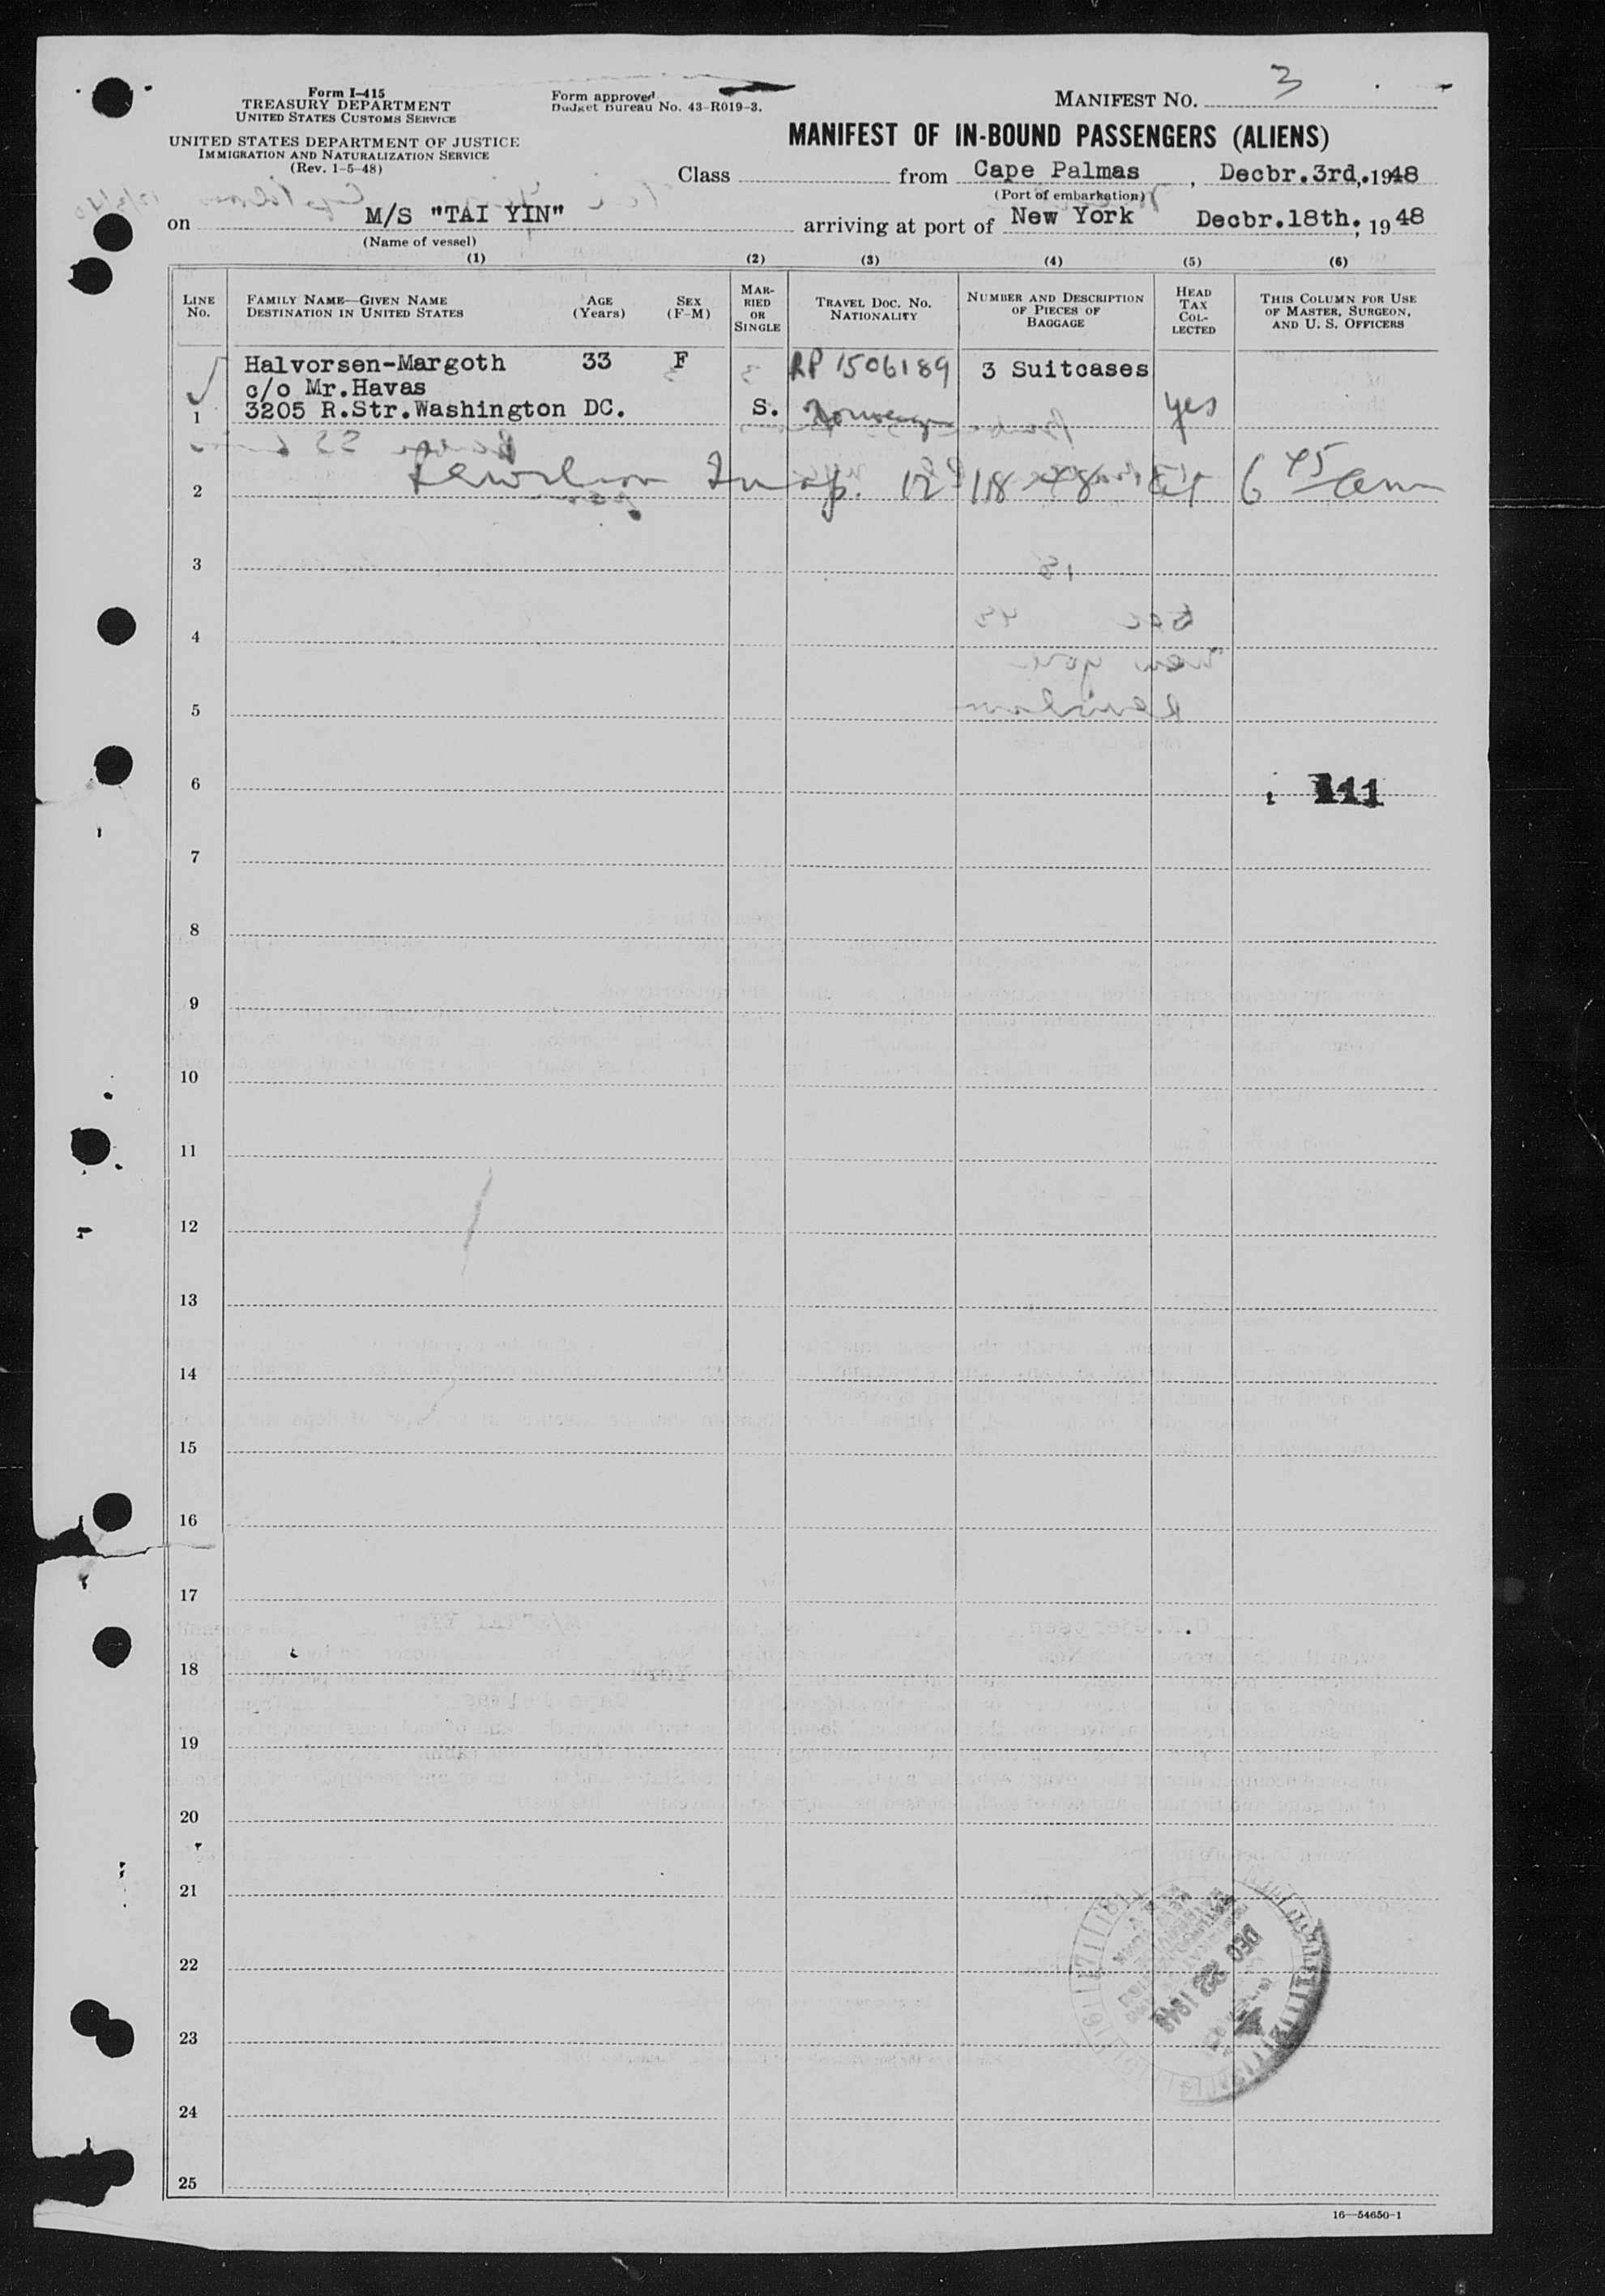 Form I-415
TREASURY DEPARTMENT
UNITED STATES CUSTOMS SERVICE
UNITED STATES DEPARTMENT OF JUSTICE
IMMIGRATION AND NATURALIZATION SERVICE
(Rev. 1-5-48)
Form approved
Budget Bureau No. 43-R019-3.
MANIFEST NO. 3
MANIFEST OF IN-BOUND PASSENGERS (ALIENS)
Class from Cape Palmas, Decbr.3rd,.1948
(Port of embarkation)
on M/S "TAI YIN" arriving at port of New York Decbr.18th., 1948
(Name of vessel)
(1) (2) (3) (4) (5) (6)
LINE No. FAMILY NAME—GIVEN NAME DESTINATION IN UNITED STATES AGE (Years) SEX (F-M) MARRIED OR SINGLE TRAVEL DOC. NO. NATIONALITY NUMBER AND DESCRIPTION OF PIECES OF BAGGAGE HEAD TAX COLLECTED THIS COLUMN FOR USE OF MASTER, SURGEON, AND U. S. OFFICERS
Halvorsen-Margoth 33 F RP 1506189 3 Suitcases
c/o Mr.Havas
1 3205 R.Str.Washington DC. S. yes
2 Insp. 12 18 48 6 45 am
3
4
5
6 111
7
8
9
10
11
12
13
14
15
16
17
18
19
20
21
22
DEC 1948
23
24
25
16—54650-1